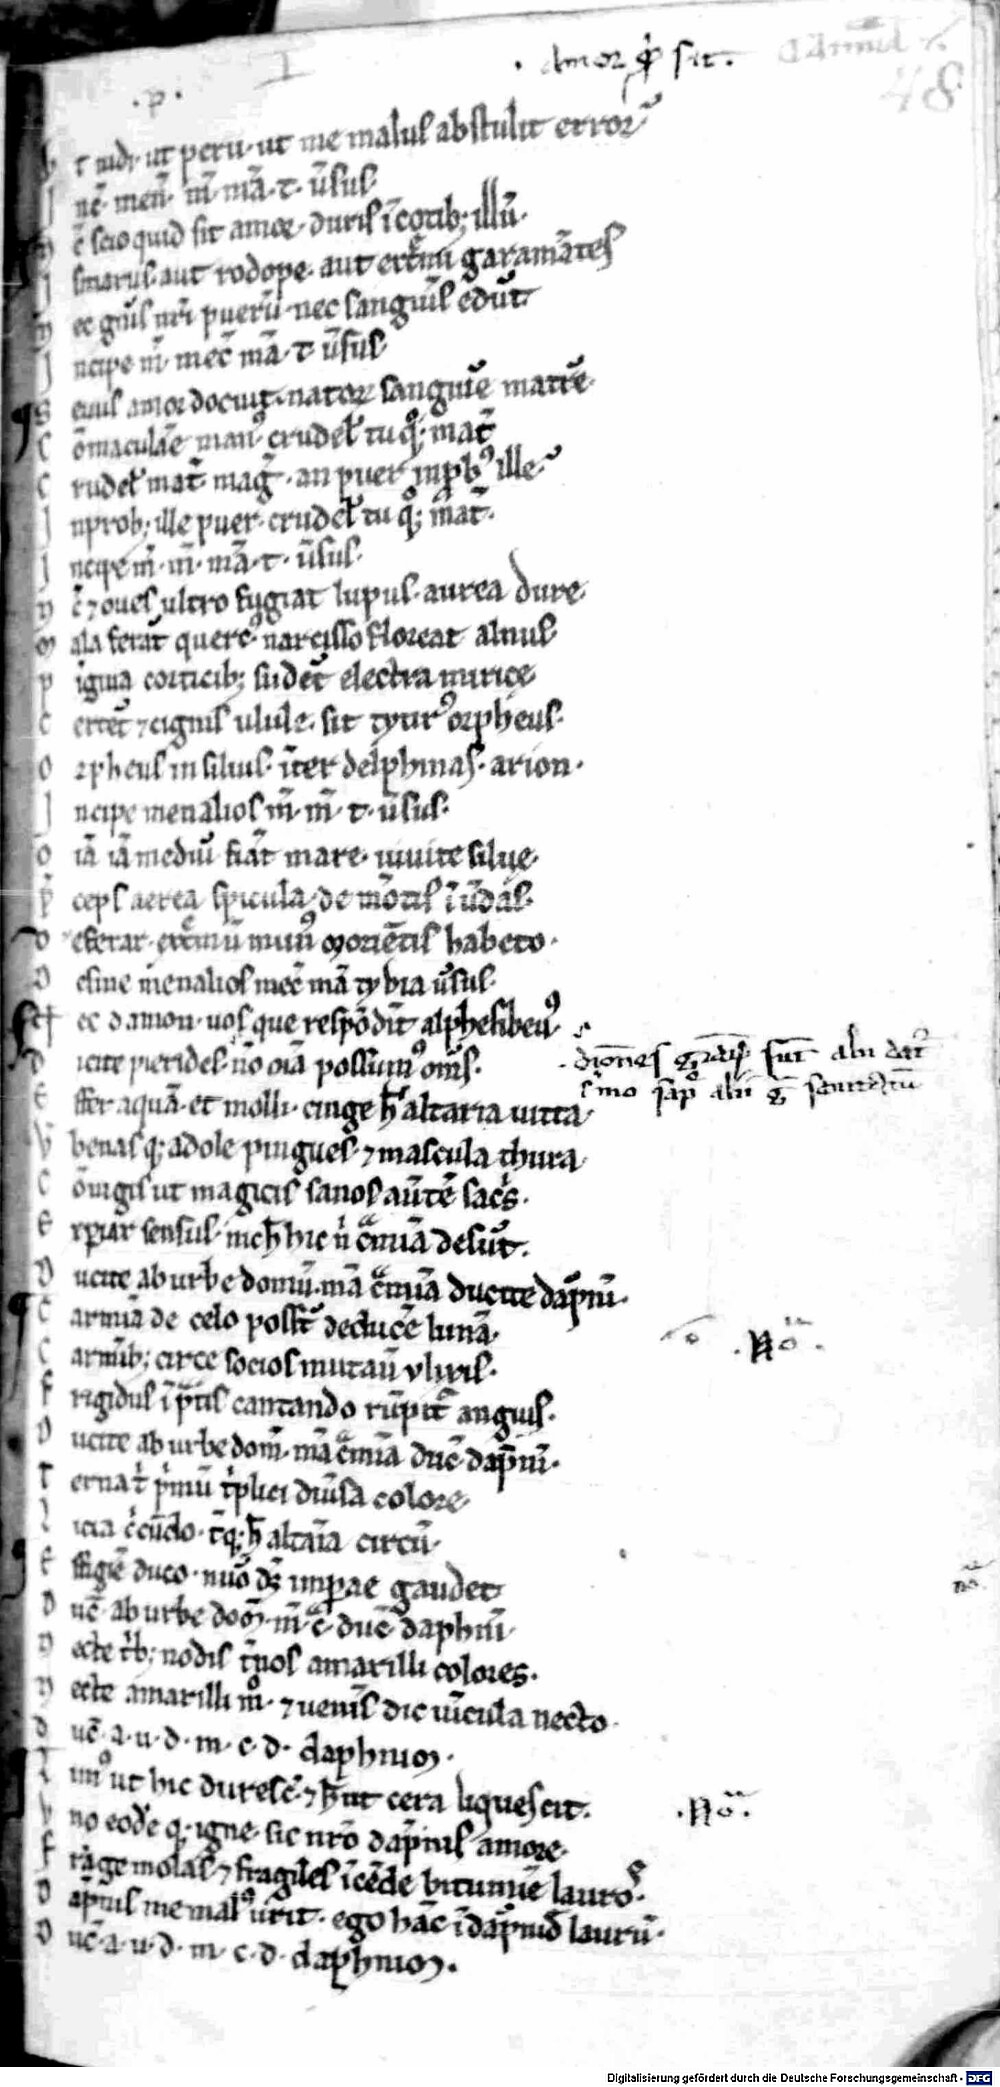 · Amor q̄d sit ·
Carmīa
48
· p ·
V t uidi· ut perii· ut me maluſ abſtulit error
I nc̄· men̄· m̄· mā· t· ūſuſ·
N c̄ scio quid sit amor· duriſ ī cotib; illū·
I smaruſ· aut rodope· aut extmi garamātes
N ec gn̄iſ nr̄i puerū· nec sanguīſ edūt·
I ncipe m̄· mec̄ mā· t ūſuſ·
S euuſ amor docuit· nator sanguīe matrē·
C ōmaculāe man9· crudel tu q̊; mat̄
C rudel mat̄· mag̅· an puer inprob9 ille
I nprob; ille puer· crudel tu q̊; mat̄·
I ncipe m̄· m̄· mā· t· ūſuſ·
N c̄ ⁊ oueſ ultro fugiat lupuſ· aurea dure
M ala ferāt querc9· narcisso floreat alnuſ
P iguia corticib; sudēt electra mirice
C ertēt ⁊ cigniſ ulule· sit tytir9 orpheus·
O rpheus in siluiſ· īter delphinaſ· arion·
I ncipe menalioſ m̄· m̄· t· ūſuſ·
O īa īa mediū fiāt mare· uiuite silue·
P cepſ aerea specula· de mōtiſ ī ūdāſ·
D eferar· extmū mun9 morientiſ habeto·
D eſine menalioſ mec̄ mā tybia ūſuſ·
H ec damon· uoſ que respōdīt alpheſibeu9
D icite pierideſ· nō oīa possum9 om̄ſ·
E ffer aquā· et molli· cinge h̄ altaria uitta·
V benaſ q; adole pingueſ· ⁊ mascula thura·
C ōiugiſ ut magiciſ sanoſ aūtē sacſ·
E xpiar̄ senſuſ· nich̄ hic n̄ cmīa desūt·
D ucite ab urbe domū· mā cmīa ducite dapnī·
C armīa ł celo possūt deducē lunā·
C armīb; circe socioſ mutauī vlixiſ·
F rigiduſ ī ptiſ cantando rūpit̄ anguiſ·
D ucite ab urbe dom̄· mā cmīa duc̄ dapnī·
T erna t̄ p̄mū tplici diūſa colore·
L icia c̄cūdo· t̄q; h̄ altaīa circū·
E ffigiē duco· nūo dſ inpare gaudet·
D uc̄ ab urbe dom̄· m̄ c̄· duc̄ daphnī·
N ecte t̄b; nodiſ t̄noſ amarilli colores·
N ecte amarilli m̊· ⁊ uenīſ dic uīcula necto·
D uc̄· a· u· d· m· c· d· daphnim·
L im9 ut hic duresc̄· ⁊ h̄ ut cera liquescit·
V no eodē q; igne· sic nr̄o dapniſ amore·
F rāge molaſ· ⁊ fragileſ īcēde bitumīe lauroſ·
D apniſ me mal9 urit· ego hāc ī dapnid̄ laurū·
D uc̄· a· u· d· m· c· d· daphnim·
· Nō ·
· Nō ·
nō
Digitalisierung gefördert durch die Deutsche Forschungsgemeinschaft - DFG